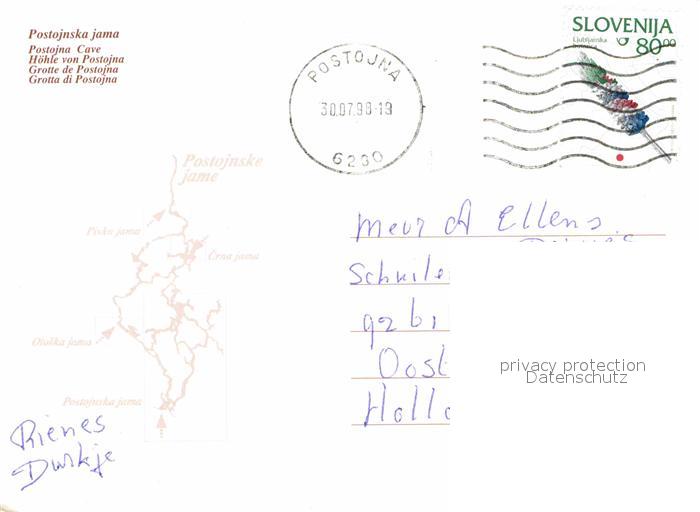 Postojnska jama
Postojna Cave
Höhle von Postojna
Grotte de Postojna
Grotta di Postojna
POSTOJNA
30.07.98-19
6230
SLOVENIJA
Ljubljanska
80 00
Postojnske
jame
Pivka jama
Črna jama
Otoška jama
Postojnska jama
Mevr A Ellens
Oost
Holl
privacy protection
Datenschutz
Rienes